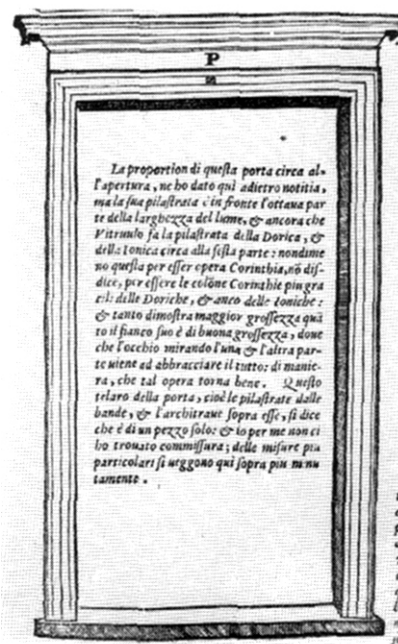 P
La proportion di queſta porta circa al-
l'apertura, ne ho dato quì adietro notitia,
ma la ſua pilaſtrata è in fronte l'ottaua par
te della larghezza del lume, & ancora che
Vitruuio fa la pilaſtrata della Dorica, &
della Ionica circa alla ſeſta parte: nondime
no queſta per eſſer opera Corinthia, nõ diſ-
dice, per eſſere le colõne Corinthie piu gra
cili delle Doriche, & anco delle Ioniche:
& tanto dimoſtra maggior groſſezza quã
to il fianco ſuo è di buona groſſezza, doue
che l'occhio mirando l'una & l'altra par-
te uiene ad abbracciare il tutto: di manie-
ra, che tal opera torna bene. Queſto
telaro della porta, cioè le pilaſtrate dalle
bande, & l'architraue ſopra eſſe, ſi dice
che è di un pezzo ſolo: & io per me non ci
ho trouato commiſſura; delle miſure piu
particolari ſi ueggono quì ſopra piu minu
tamente.